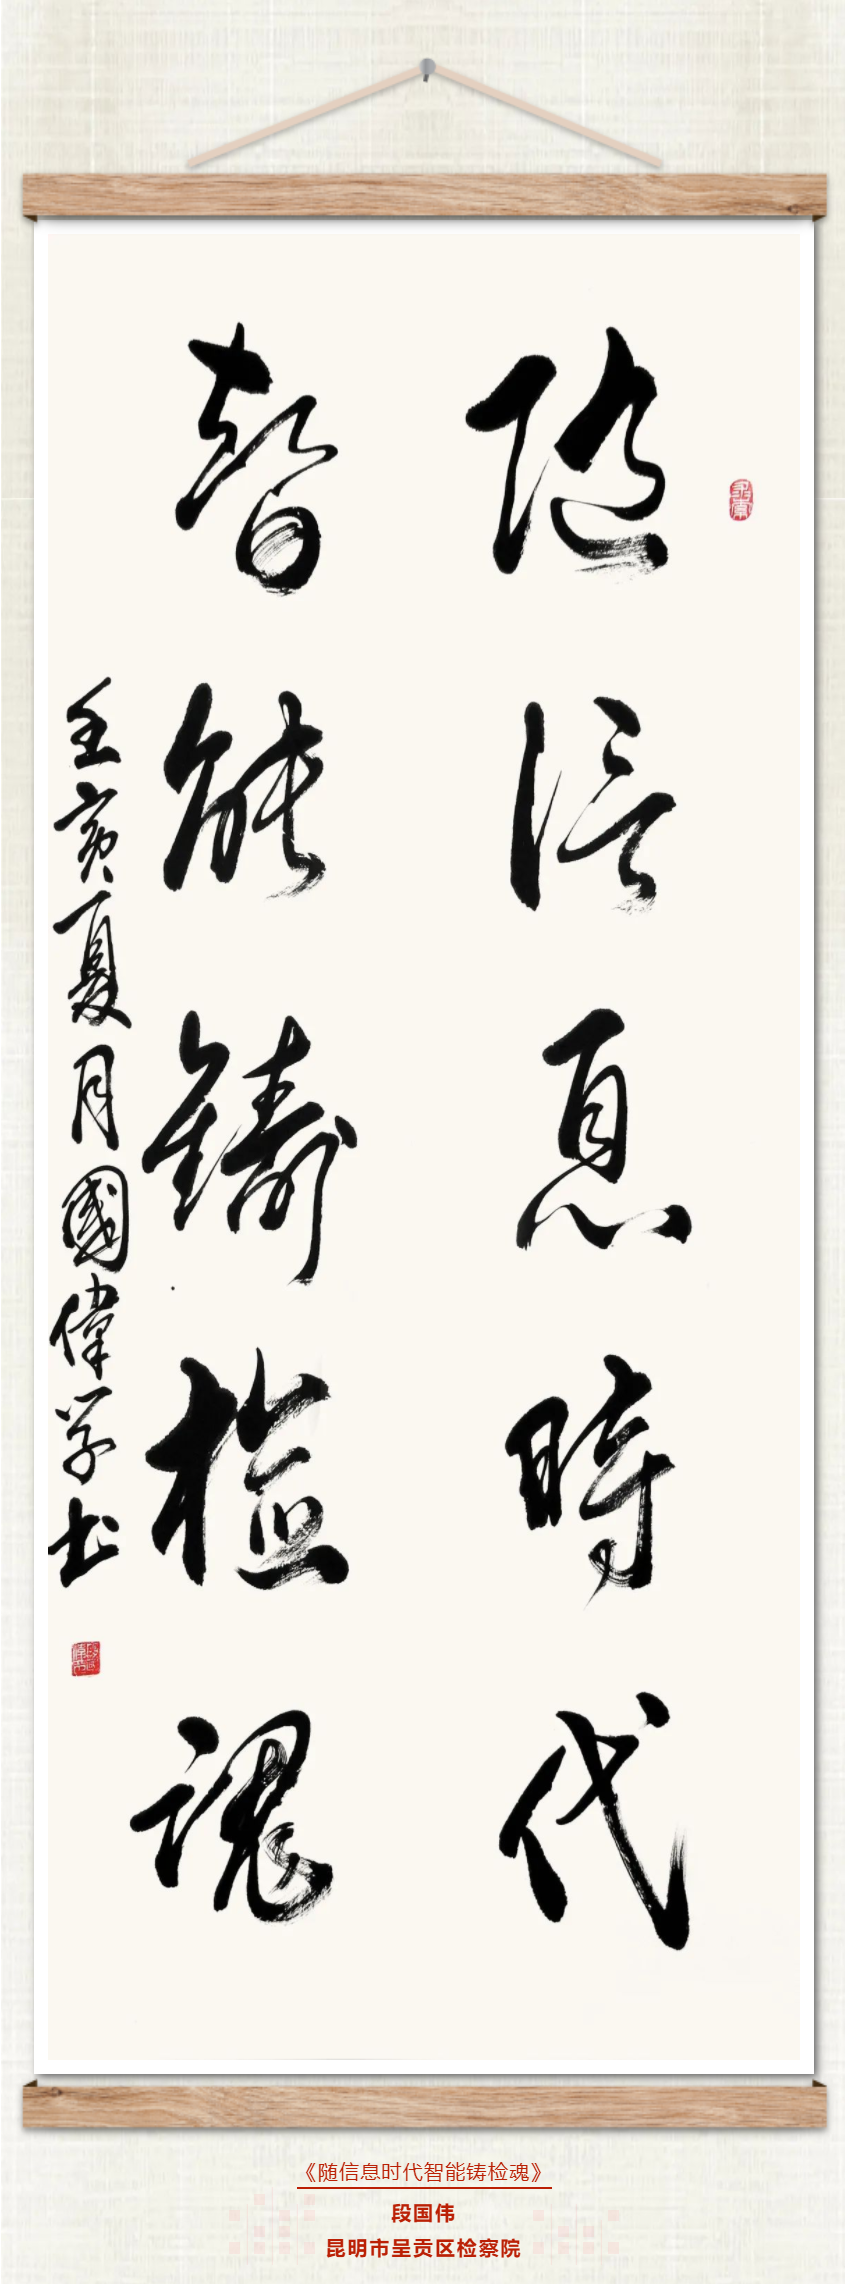 随信息時代
智能鑄檢魂
壬寅夏月國偉学书
《随信息时代智能铸检魂》
段国伟
昆明市呈贡区检察院